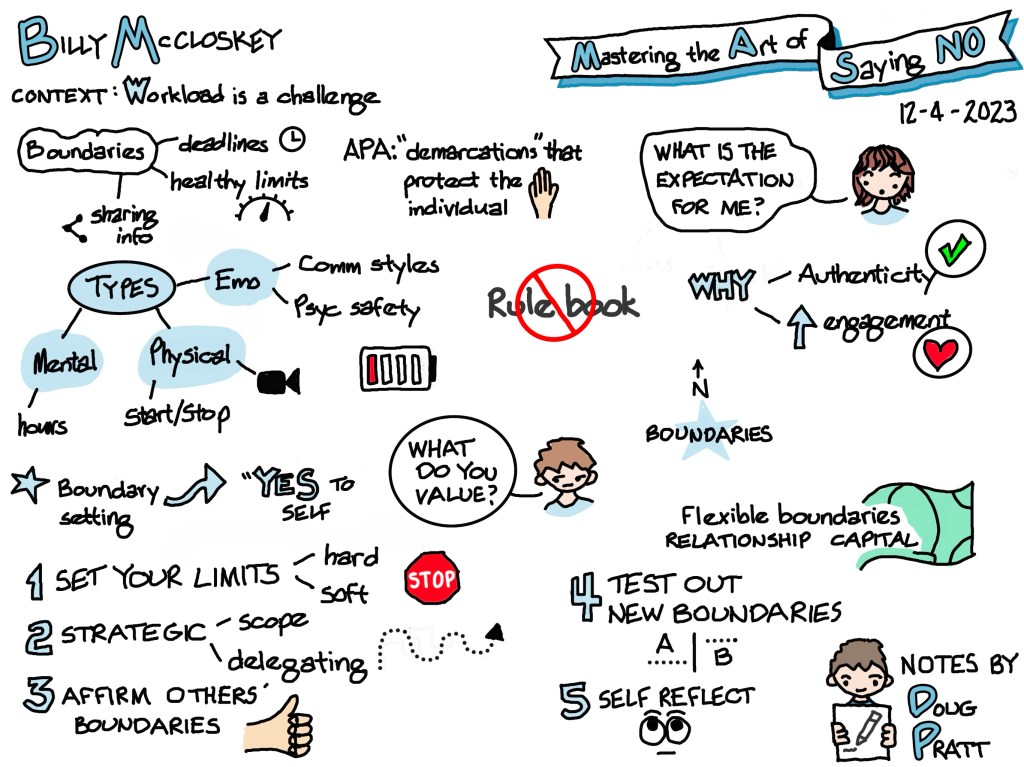 BILLY McCLOSKEY
Mastering the Art of
Saying NO
12-4-2023
CONTEXT: Workload is a challenge
Boundaries
deadlines
healthy limits
sharing
info
APA: "demarcations" that
protect the
individual
WHAT IS THE
EXPECTATION
FOR ME?
TYPES
Emo
Comm styles
Psyc safety
Mental
hours
Physical
Start/Stop
Rule book
WHY
Authenticity
engagement
N
BOUNDARIES
Boundary
setting
"YES TO
SELF
WHAT
DO YOU
VALUE?
Flexible boundaries
RELATIONSHIP CAPITAL
1 SET YOUR LIMITS
hard
soft
STOP
2 STRATEGIC
scope
delegating
3 AFFIRM OTHERS'
BOUNDARIES
4 TEST OUT
NEW BOUNDARIES
A
B
5 SELF REFLECT
NOTES BY
DOUG
PRATT